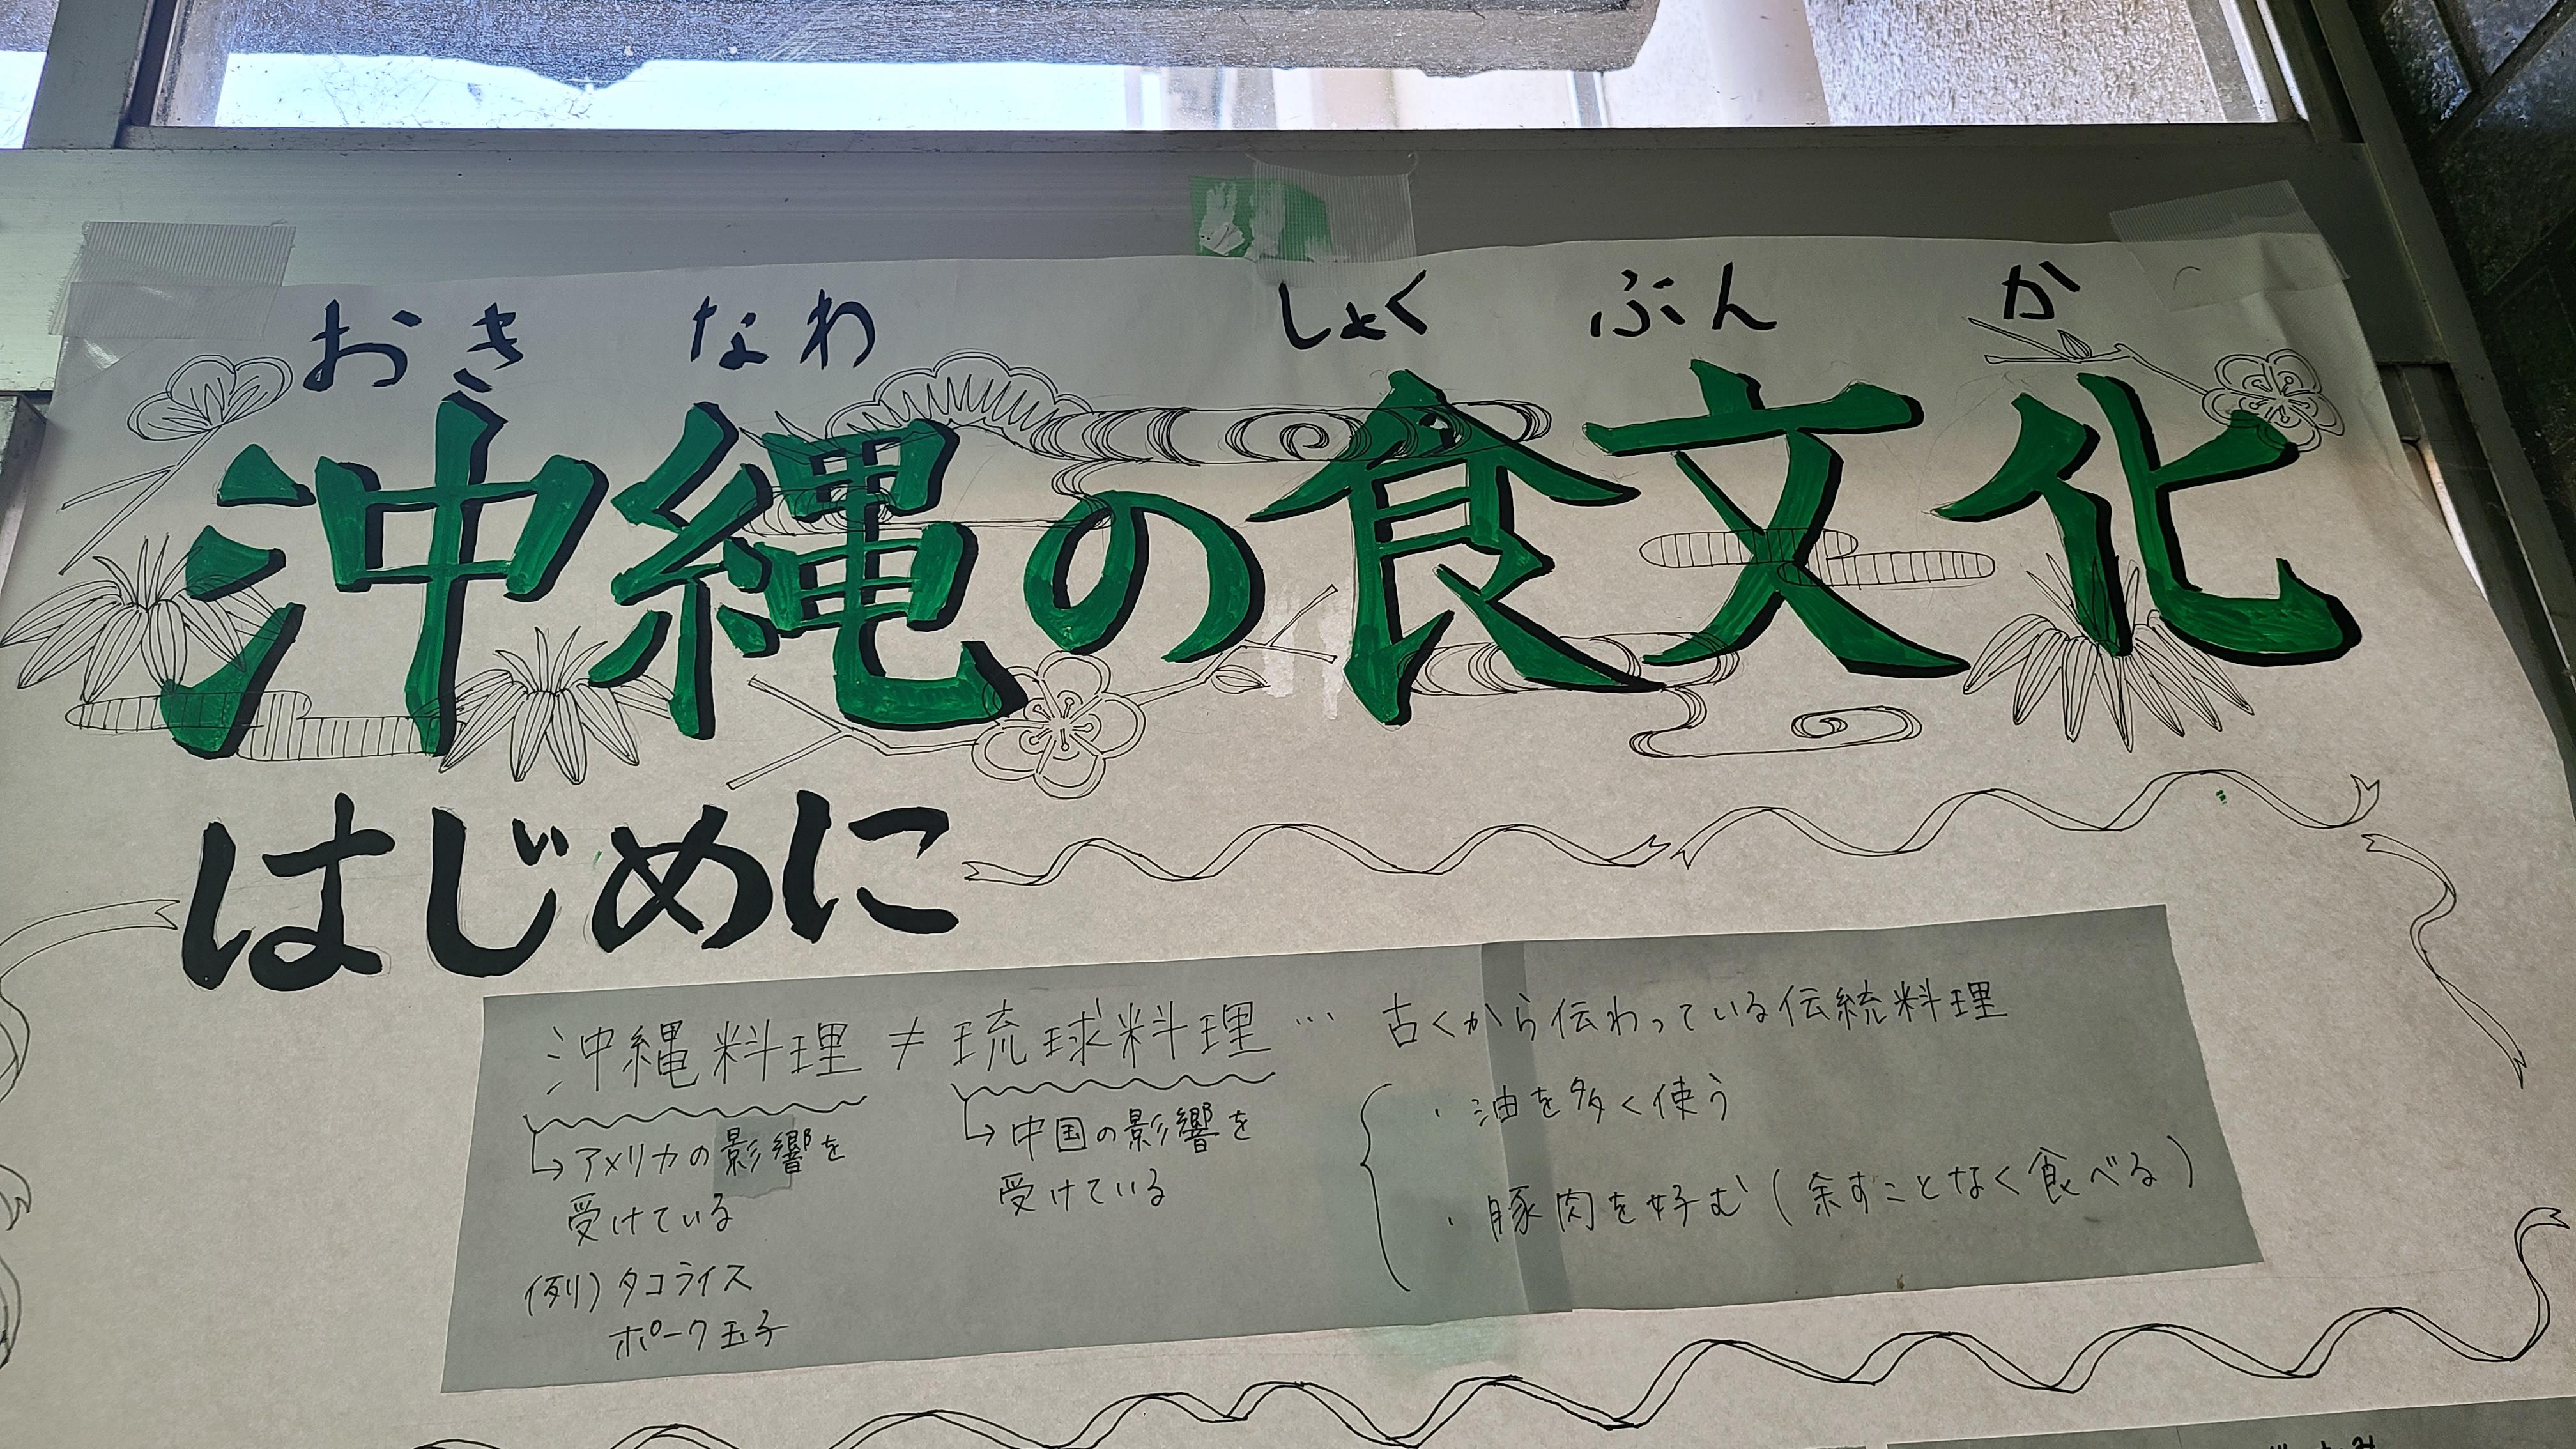 おきなわ しょくぶんか
沖縄の食文化
はじめに
沖縄料理 ≠ 琉球料理 … 古くから伝わっている伝統料理
→アメリカの影響を
受けている
(例) タコライス
ポーク玉子
→中国の影響を
受けている
・油を多く使う
・豚肉を好む(余すことなく食べる)